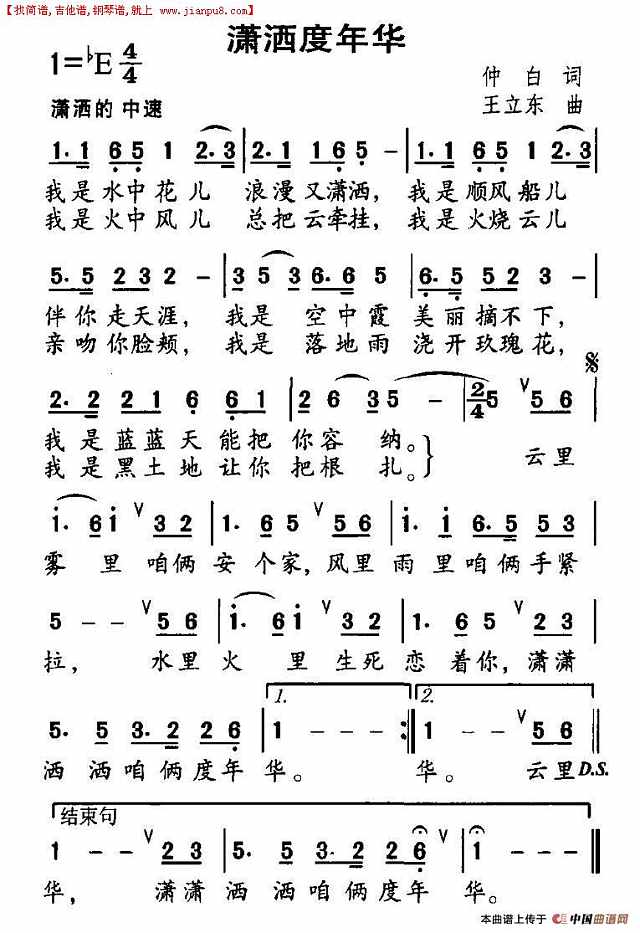 【找简谱,吉他谱,钢琴谱,就上 www.jianpu8.com】
潇洒度年华
1=♭E 4/4
仲 白 词
潇洒的 中速
王立东 曲
1· 1 6 5 1 2·3 | 2· 1 1 6 5 – | 1·1 6 5 1 2·3 |
我是水中花儿 浪漫又潇洒, 我是顺风船儿
我是火中风儿 总把云牵挂, 我是火烧云儿
5· 5 2 3 2 – | 3 5 3 5 1·6 5 | 6· 5 5 2 3 2 – |
伴你走天涯, 我是 空中霞 美丽摘不下,
亲吻你脸颊, 我是 落地雨 浇开玖瑰花,
2· 2 2 1 2 6 6 1 | 2 6 3 5 – | 2/4 5 V 5 6 |
我是蓝蓝天能把 你容 纳。
我是黑土地让你 把根 扎。 云里
i· 6 i V 3 2 | 1 2 3 5 V 5 6 | i· 6 6· 5 5 3 |
雾 里 咱俩 安个家,风里 雨里咱俩手紧
5 – – V 5 6 | i· 6 i V 3 2 | 1· 6 5 V 2 3 |
拉, 水里 火 里 生死 恋着你,潇潇
1. 2.
5· 5 3· 2 2 6 | 1 – – – :| 1 – – V 5 6 |
洒 洒咱俩度年 华。 华。 云里 D.S.
结束句
1 – – V 2 3 | 5· 5 3· 2 2 6 | 1 – – – ‖
华, 潇潇 洒 洒咱俩度年 华。
本曲谱上传于 中国曲谱网